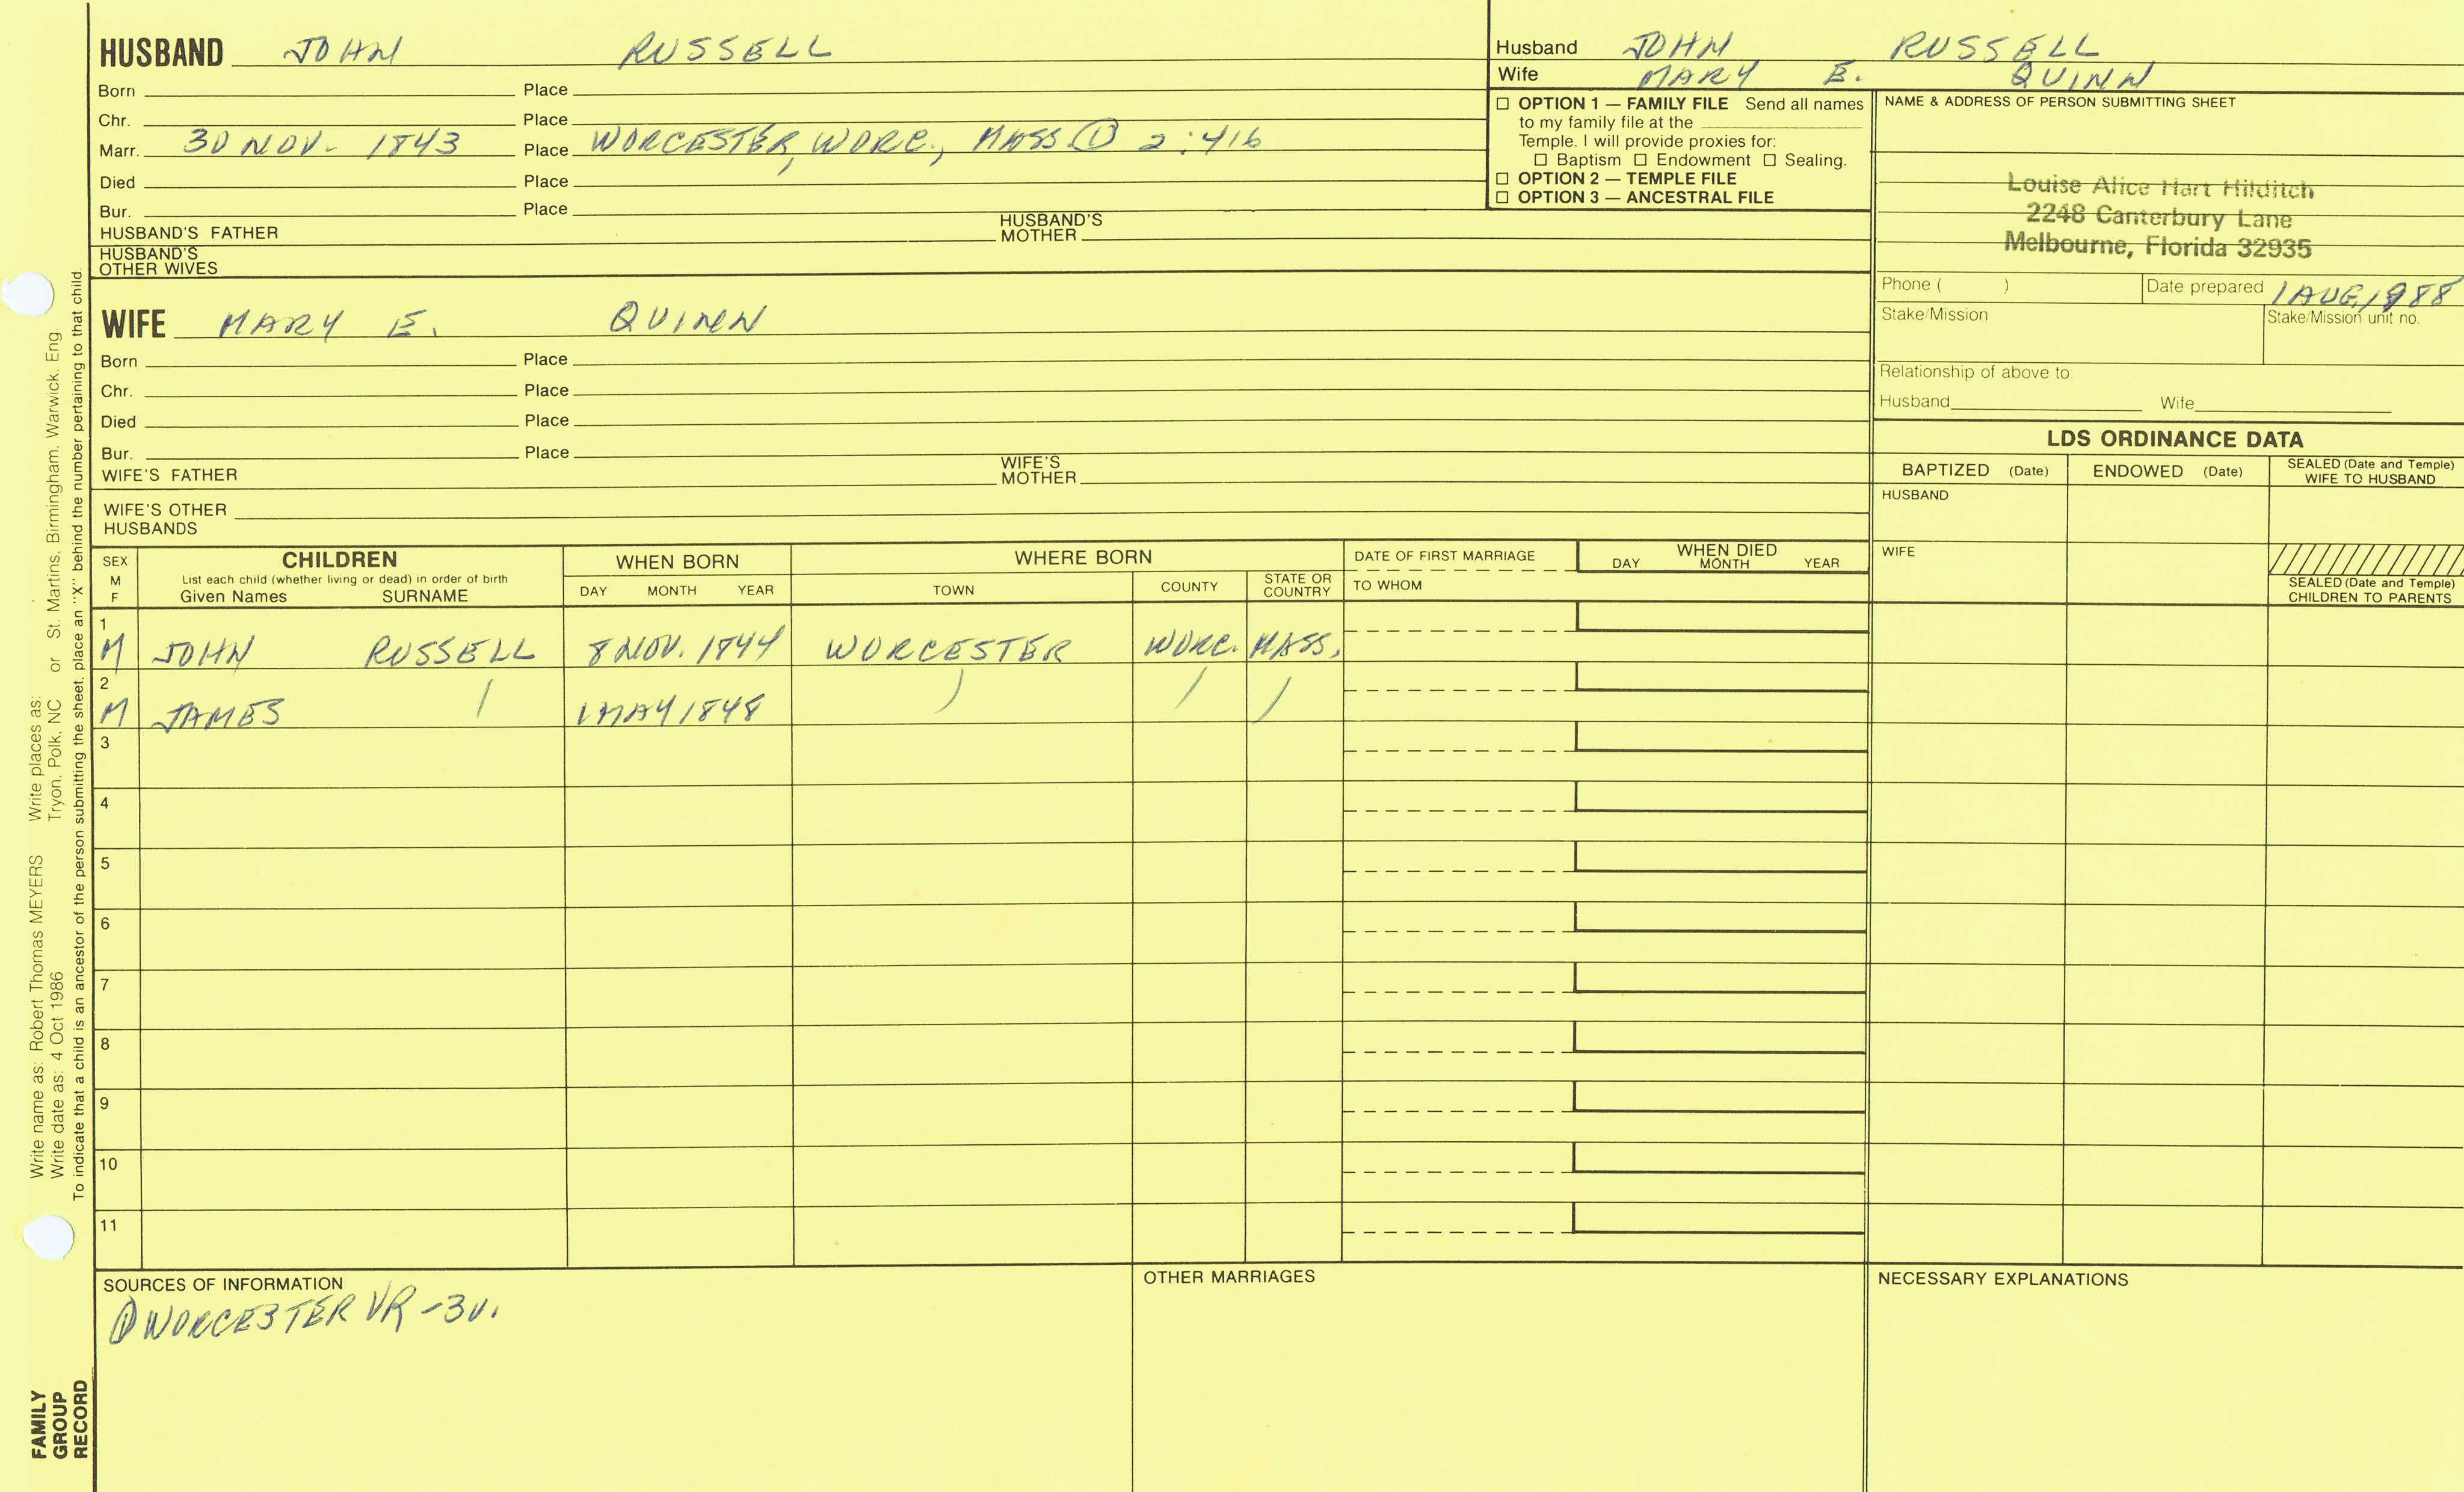 HUSBAND JOHN RUSSELL
Born Place
Chr. Place
Marr. 30 NOV. 1843 Place WORCESTER, WORC., MASS ① 2:416
Died Place
Bur. Place
HUSBAND'S FATHER HUSBAND'S MOTHER
HUSBAND'S OTHER WIVES
WIFE MARY E. QUINN
Born Place
Chr. Place
Died Place
Bur. Place
WIFE'S FATHER WIFE'S MOTHER
WIFE'S OTHER HUSBANDS
Husband JOHN RUSSELL
Wife MARY E. QUINN
☐ OPTION 1 — FAMILY FILE Send all names
to my family file at the
Temple. I will provide proxies for:
☐ Baptism ☐ Endowment ☐ Sealing.
☐ OPTION 2 — TEMPLE FILE
☐ OPTION 3 — ANCESTRAL FILE
NAME & ADDRESS OF PERSON SUBMITTING SHEET
Louise Alice Hart Hilditch
2248 Canterbury Lane
Melbourne, Florida 32935
Phone ( ) Date prepared 1 AUG, 1988
Stake/Mission Stake/Mission unit no.
Relationship of above to
Husband Wife
LDS ORDINANCE DATA
BAPTIZED (Date) ENDOWED (Date) SEALED (Date and Temple) WIFE TO HUSBAND
HUSBAND
WIFE
SEALED (Date and Temple)
CHILDREN TO PARENTS
SEX M F
CHILDREN
List each child (whether living or dead) in order of birth
Given Names SURNAME
WHEN BORN
DAY MONTH YEAR
WHERE BORN
TOWN COUNTY STATE OR COUNTRY
DATE OF FIRST MARRIAGE
TO WHOM
WHEN DIED
DAY MONTH YEAR
1
M JOHN RUSSELL 8 NOV. 1844 WORCESTER WORC. MASS.
2
M JAMES / 1 MAY 1848 ) / /
3
4
5
6
7
8
9
10
11
SOURCES OF INFORMATION
① WORCESTER VR - 3V.
OTHER MARRIAGES
NECESSARY EXPLANATIONS
Write name as: Robert Thomas MEYERS Write places as:
Write date as: 4 Oct 1986 Tryon, Polk, NC or St. Martins, Birmingham, Warwick, Eng
To indicate that a child is an ancestor of the person submitting the sheet, place an "X" behind the number pertaining to that child.
FAMILY
GROUP
RECORD